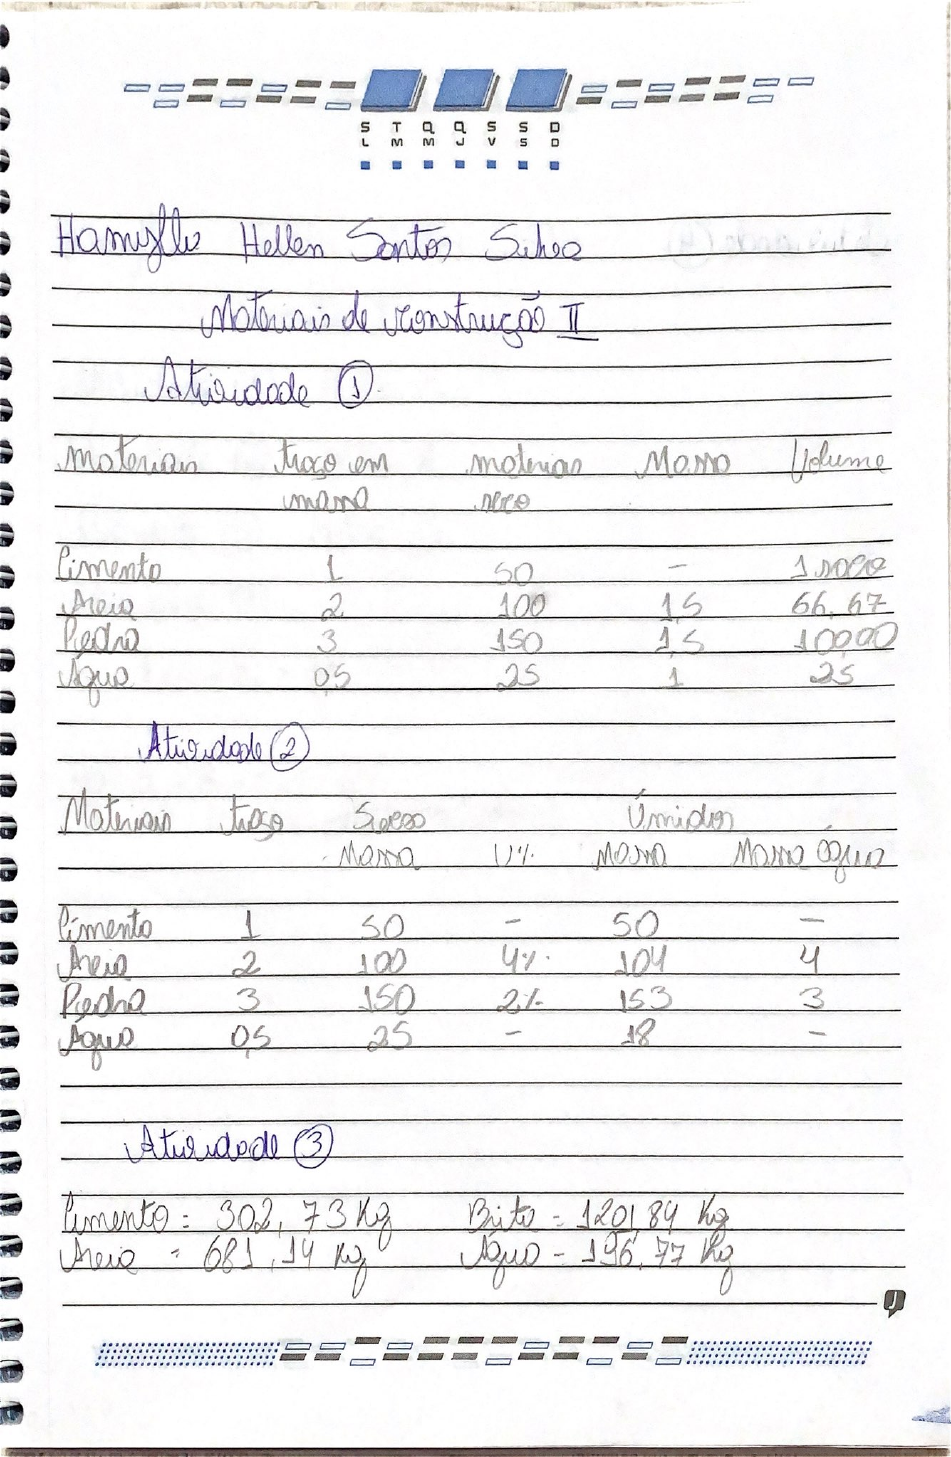 S T Q Q S S D
L M M J V S D
Hamylle Hellen Santos Silva
Materiais de construção II
Atividade 1
Materiais traço em materiais Massa Volume
massa seco
Cimento 1 50 -
Areia 2 100 1,5 66,67
Pedra 3 150 1,5 100,00
Água 0,5 25 1 25
Atividade 2
Materiais traço Secos Úmidos
Massa U% Massa Massa água
Cimento 1 50 - 50 -
Areia 2 100 4% 104 4
Pedra 3 150 2% 153 3
Água 0,5 25 - 18 -
Atividade 3
Cimento = 302,73 Kg Brita = 1201,84 Kg
Areia = 681,14 Kg Água = 196,77 Kg
J